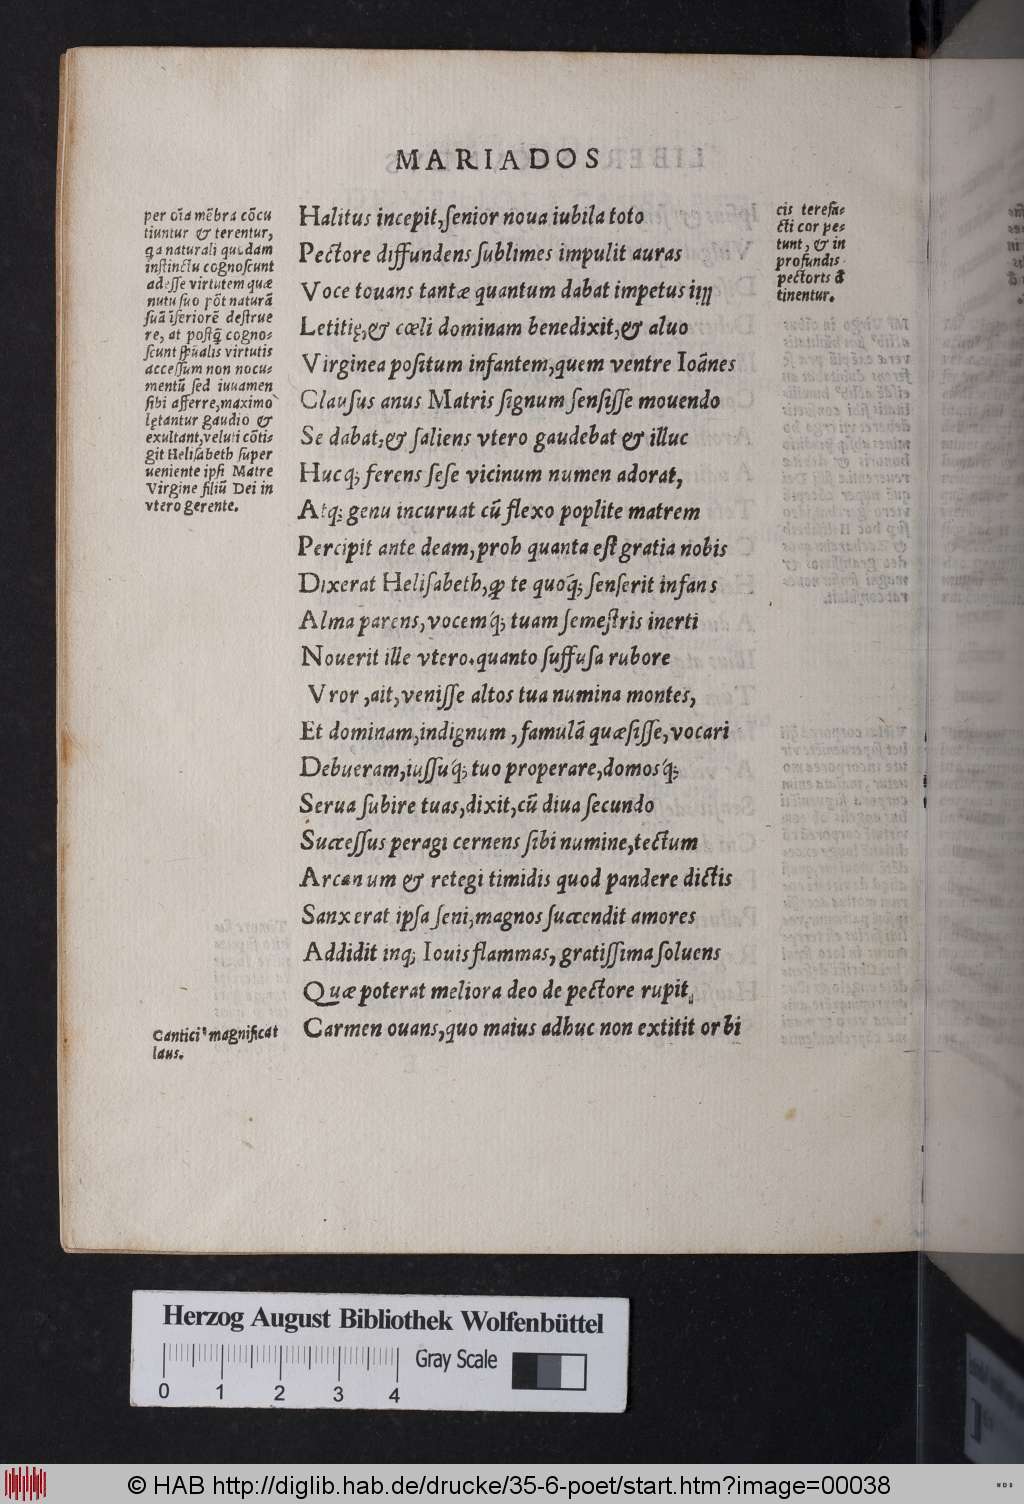 MARIADOS
per oĩa mẽbra cõcu
tiuntur & terentur,
q̃a naturali quodam
instinctu cognoscunt
adesse virtutem quæ
nutu suo põt naturã
suã ĩferiorẽ destrue
re, at postq̃ cogno-
scunt sp̃ualis virtutis
accessum non nocu-
mentũ sed iuuamen
sibi afferre, maximo
lętantur gaudio &
exultant, veluti cõti-
git Helisabeth super
ueniente ipsi Matre
Virgine filiũ Dei in
vtero gerente.
Halitus incepit, senior noua iubila toto
Pectore diffundens sublimes impulit auras
Voce touans tantæ quantum dabat impetus
Letitię, & cœli dominam benedixit, & aluo
Virginea positum infantem, quem ventre Ioãnes
Clausus anus Matris signum sensisse mouendo
Se dabat, & saliens vtero gaudebat & illuc
Hucq; ferens sese vicinum numen adorat,
Atq; genu incuruat cũ flexo poplite matrem
Percipit ante deam, proh quanta est gratia nobis
Dixerat Helisabeth, ꝙ te quoq̃; senserit infans
Alma parens, vocemq́; tuam semestris inerti
Nouerit ille vtero. quanto suffusa rubore
Vror, ait, venisse altos tua numina montes,
Et dominam, indignum, famulã quæsisse, vocari
Debueram, iussuq́; tuo properare, domosq́;
Serua subire tuas, dixit, cũ diua secundo
Successus peragi cernens sibi numine, tectum
Arcanum & retegi timidis quod pandere dictis
Sanxerat ipsa seni, magnos succendit amores
Addidit inq; Iouis flammas, gratissima soluens
Quæ poterat meliora deo de pectore rupit
Carmen ouans, quo maius adhuc non extitit orbi
cis terefa-
cti cor pe-
tunt, & in
profundis
pectoris
tinentur.
Cantici magnificat
laus.
Herzog August Bibliothek Wolfenbüttel
Gray Scale
0 1 2 3 4
© HAB http://diglib.hab.de/drucke/35-6-poet/start.htm?image=00038